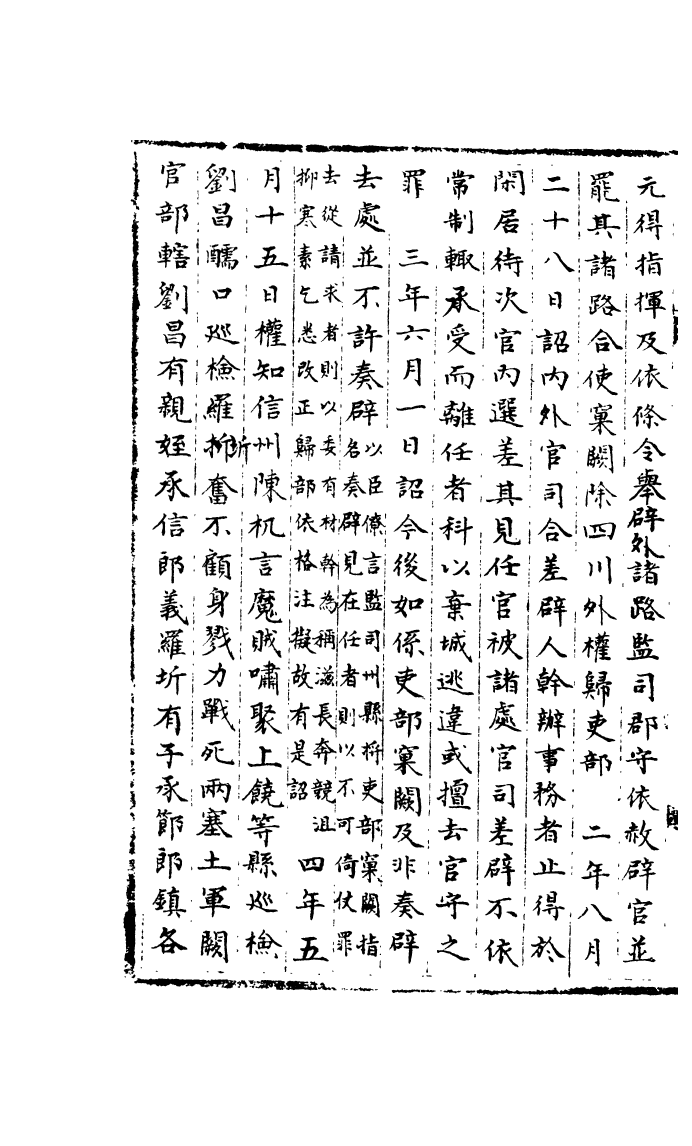 元得指揮及依條令舉辟外諸路監司郡守依赦辟官並
罷其諸路合使窠闕除四川外權歸吏部　二年八月
二十八日詔內外官司合差辟人幹辦事務者止得於
閑居待次官內選差其見任官被諸處官司差辟不依
常制輒承受而離任者科以棄城逃違或擅去官守之
罪　三年六月一日詔今後如係吏部窠闕及非奏辟
去處並不許奏辟以臣僚言監司州縣將吏部窠闕指
名奏辟見在任者則以不可倚仗罪
去從請求者則以委有材幹為稱滋長奔競沮
抑寒素乞悉改正歸部依格注擬故有是詔　四年五
月十五日權知信州陳机言魔賊嘯聚上饒等縣巡檢
劉昌醹口巡檢羅圻奮不顧身戮力戰死兩寨土軍闕
官部轄劉昌有親姪承信郎義羅圻有子承節郎鎮各